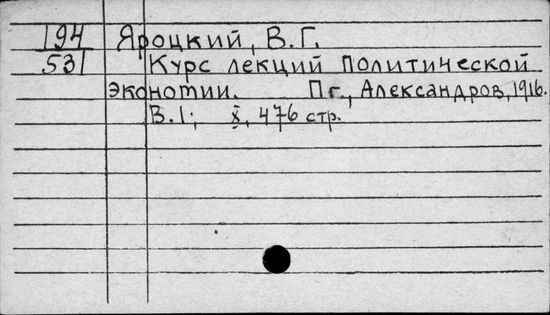 194 Яроцкий, В.Г.
531 Курс лекций политической
экономии. Пг., Александров, 1916.
В.1; X, 476 стр.